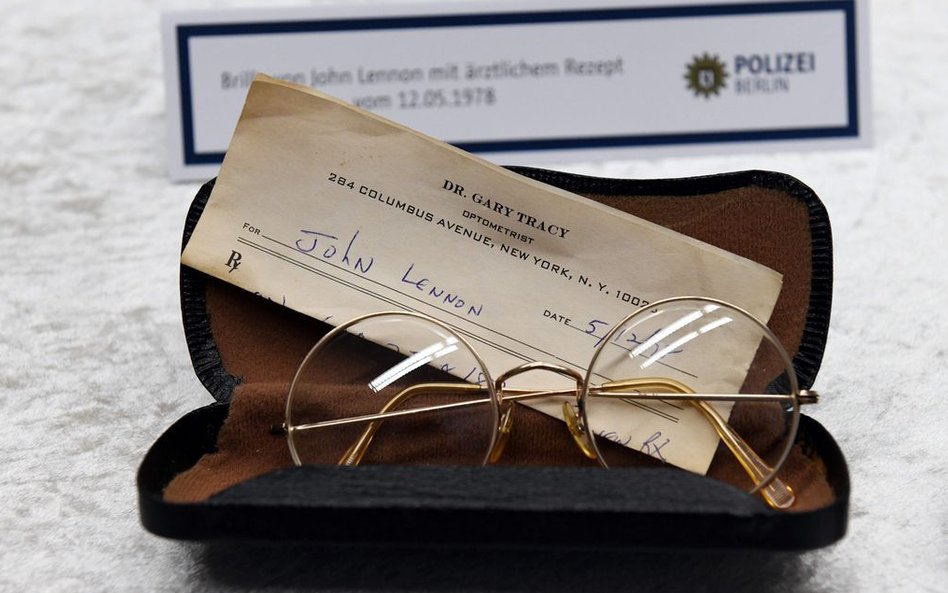 Brille von John Lennon mit ärztlichem Rezept
vom 12.05.1978
POLIZEI
BERLIN
DR. GARY TRACY
OPTOMETRIST
284 COLUMBUS AVENUE, NEW YORK, N. Y. 1002
FOR John Lennon
DATE 5/12/
Rx
Rx